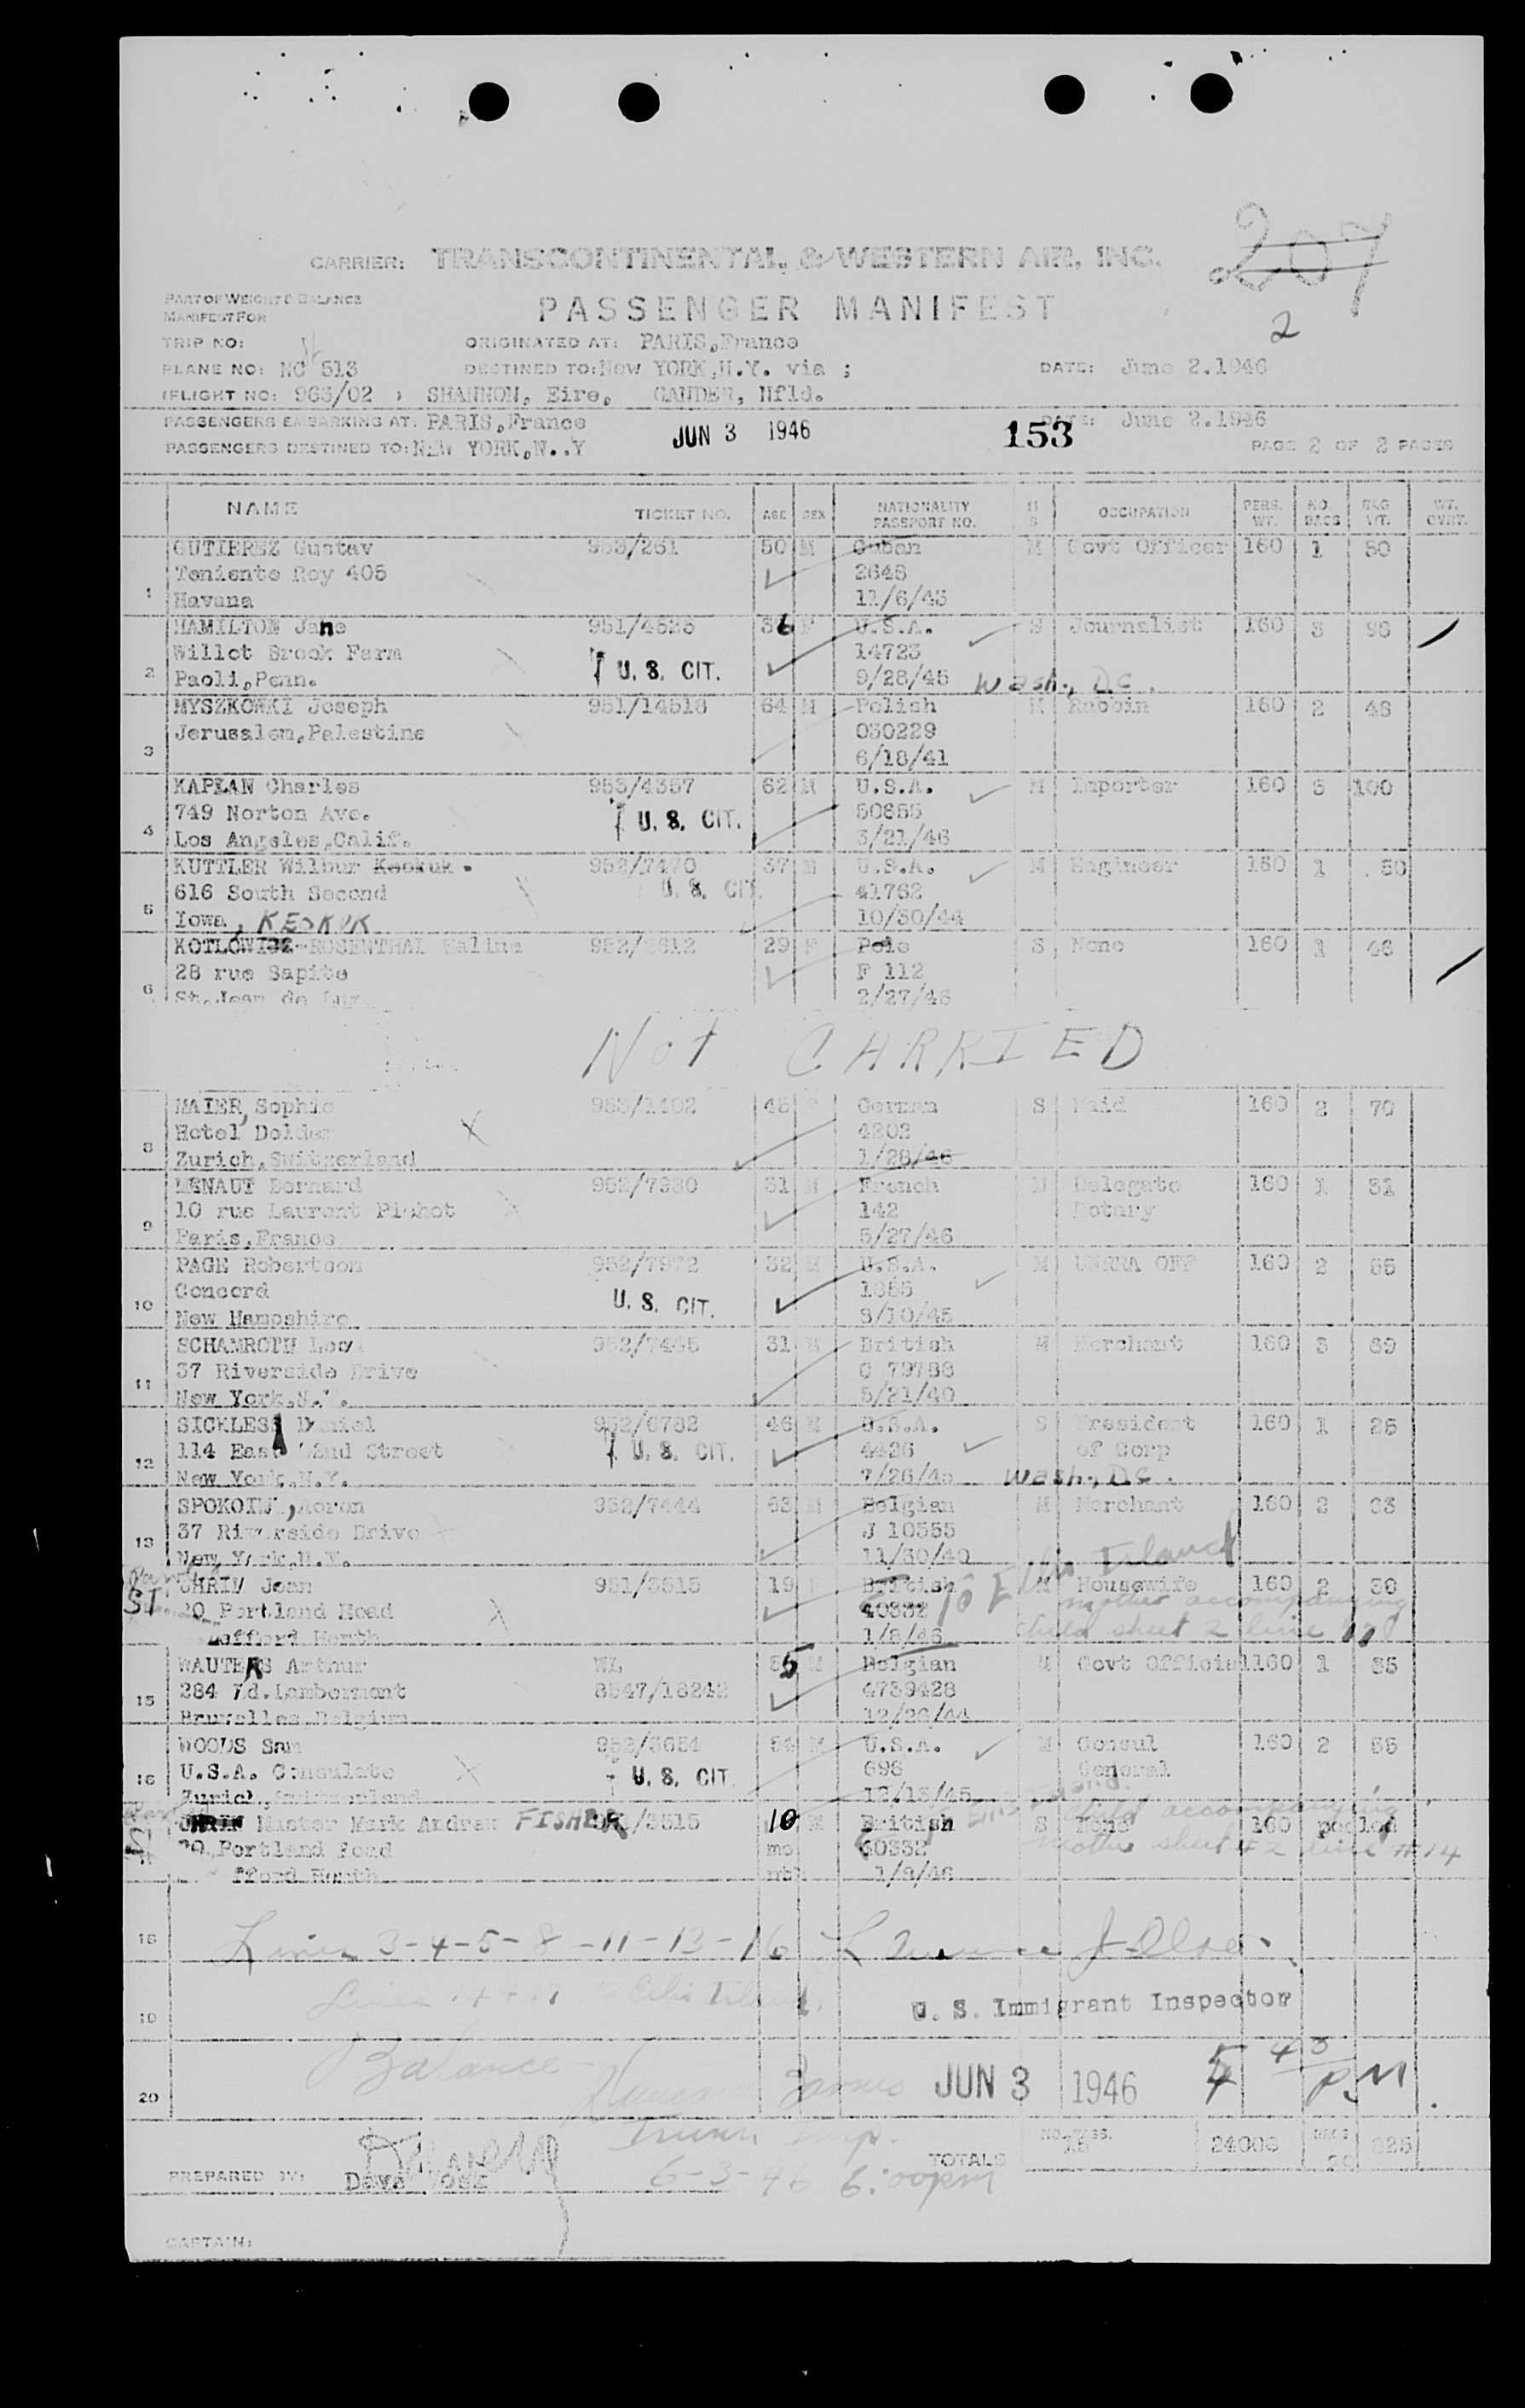 207
2
CARRIER: TRANSCONTINENTAL & WESTERN AIR, INC.
PART OF WEIGHT & BALANCE
MANIFEST FOR
PASSENGER MANIFEST
TRIP NO:
ORIGINATED AT: PARIS,France
PLANE NO: NC 513
DESTINED TO: New YORK,N.Y. via ;
DATE: June 2.1946
(FLIGHT NO: 963/02 ) SHANNON, Eire, GANDER, Nfld.
PASSENGERS EMBARKING AT: PARIS,France
JUN 3 1946
153
DATE: June 2.1946
PASSENGERS DESTINED TO: NEW YORK,N..Y
PAGE 2 OF 2 PAGES
NAME TICKET NO. AGE SEX NATIONALITY PASSPORT NO. M S OCCUPATION PERS. WT. NO. BAGS BAG WT. WT. OVRT.
GUTIEREZ Gustav 953/261 50 M Cuban M Govt Officer 160 1 80
Teniente Rey 405 2648
1 Havana 11/6/45
HAMILTON Jane 36 F U.S.A. S Journalist 160 3 96
Willet Brook Farm U. S. CIT. 14723
2 Paoli,Penn. 9/28/45 Wash., DC.
MYSZKOWKI Joseph 951/14518 64 M Polish M Rabbin 160 2 48
Jerusalem,Palestine 030229
3 6/18/41
KAPLAN Charles 953/4357 62 M U.S.A. M Importer 160 100
749 Norton Ave. U. S. CIT. 50855
4 Los Angeles,Calif. 3/21/46
KUTTLER Wilbur Keokuk. 952/7470 37 M U.S.A. M Engineer 160 1 50
616 South Second U. S. CIT. 41762
5 Iowa, KEOKUK 10/30/44
KOTLOWICZ-ROSENTHAL Halina 952/2612 29 F Pole S None 160 1 46
28 rue Sapite F 112
6 St.Jean de Luz 2/27/46
Not CARRIED
MAIER, Sophie 953/1402 45 German S Maid 160 2 70
Hotel Dolder 4202
8 Zurich,Switzerland 1/28/46
MENAUT Bernard 952/7980 31 M French M Delegate 160 1 31
10 rue Laurent Pichot 142 Rotary
9 Paris,France 5/27/46
PAGE Robertson 952/7972 32 M U.S.A. M UNRRA OFF 160 2
Concord U. S. CIT. 1855
10 New Hampshire 8/10/45
SCHAMROTH 952/7445 31 M British M Merchant 160 3
37 Riverside Drive C 79788
11 New York,N.Y. 5/21/40
SICKLES Daniel 952/6782 46 M U.S.A. S President 160 1 25
114 East 62nd Street U. S. CIT. 4426 of Corp
12 New York,N.Y. 7/26/45 Wash., DC.
952/7444 63 M Belgian M Merchant 160 2 33
37 Riverside Drive J 10555
13 New York,N.Y. 11/30/40 To Ellis Island
CHRIN Jean 951/3515 19 British M Housewife 160 2 30
20 Portland Road 40332 mother accompanying
1/8/46 child sheet 2 line 17
WAUTERS Arthur 5 M Belgian M Govt Official 160 1 35
284 Bd.Lambermont 8547/18242 4739428
15 Bruxelles,Belgium 12/28/44
WOODS Sam 54 M U.S.A. M Consul 160 2 55
U.S.A. Consulate U. S. CIT 698 General
16 Zurich,Switzerland 12/13/45
CHRIN Master Mark Andrew FISHER 951/3515 10 M British S None 160 pooled
child accompanying
20,Portland Road mo 40332 mother sheet #2 line #14
nth 1/8/46
18 Lines 3-4-5-8-11-13-16
19 Lines 14-17 to Ellis Island.
U. S. Immigrant Inspector
Balance
20 JUN 3 1946 5 43 PM.
6-3-46 6:00pm
NO. PASS. BAGS
TOTALS
PREPARED BY: Dave
CAPTAIN: